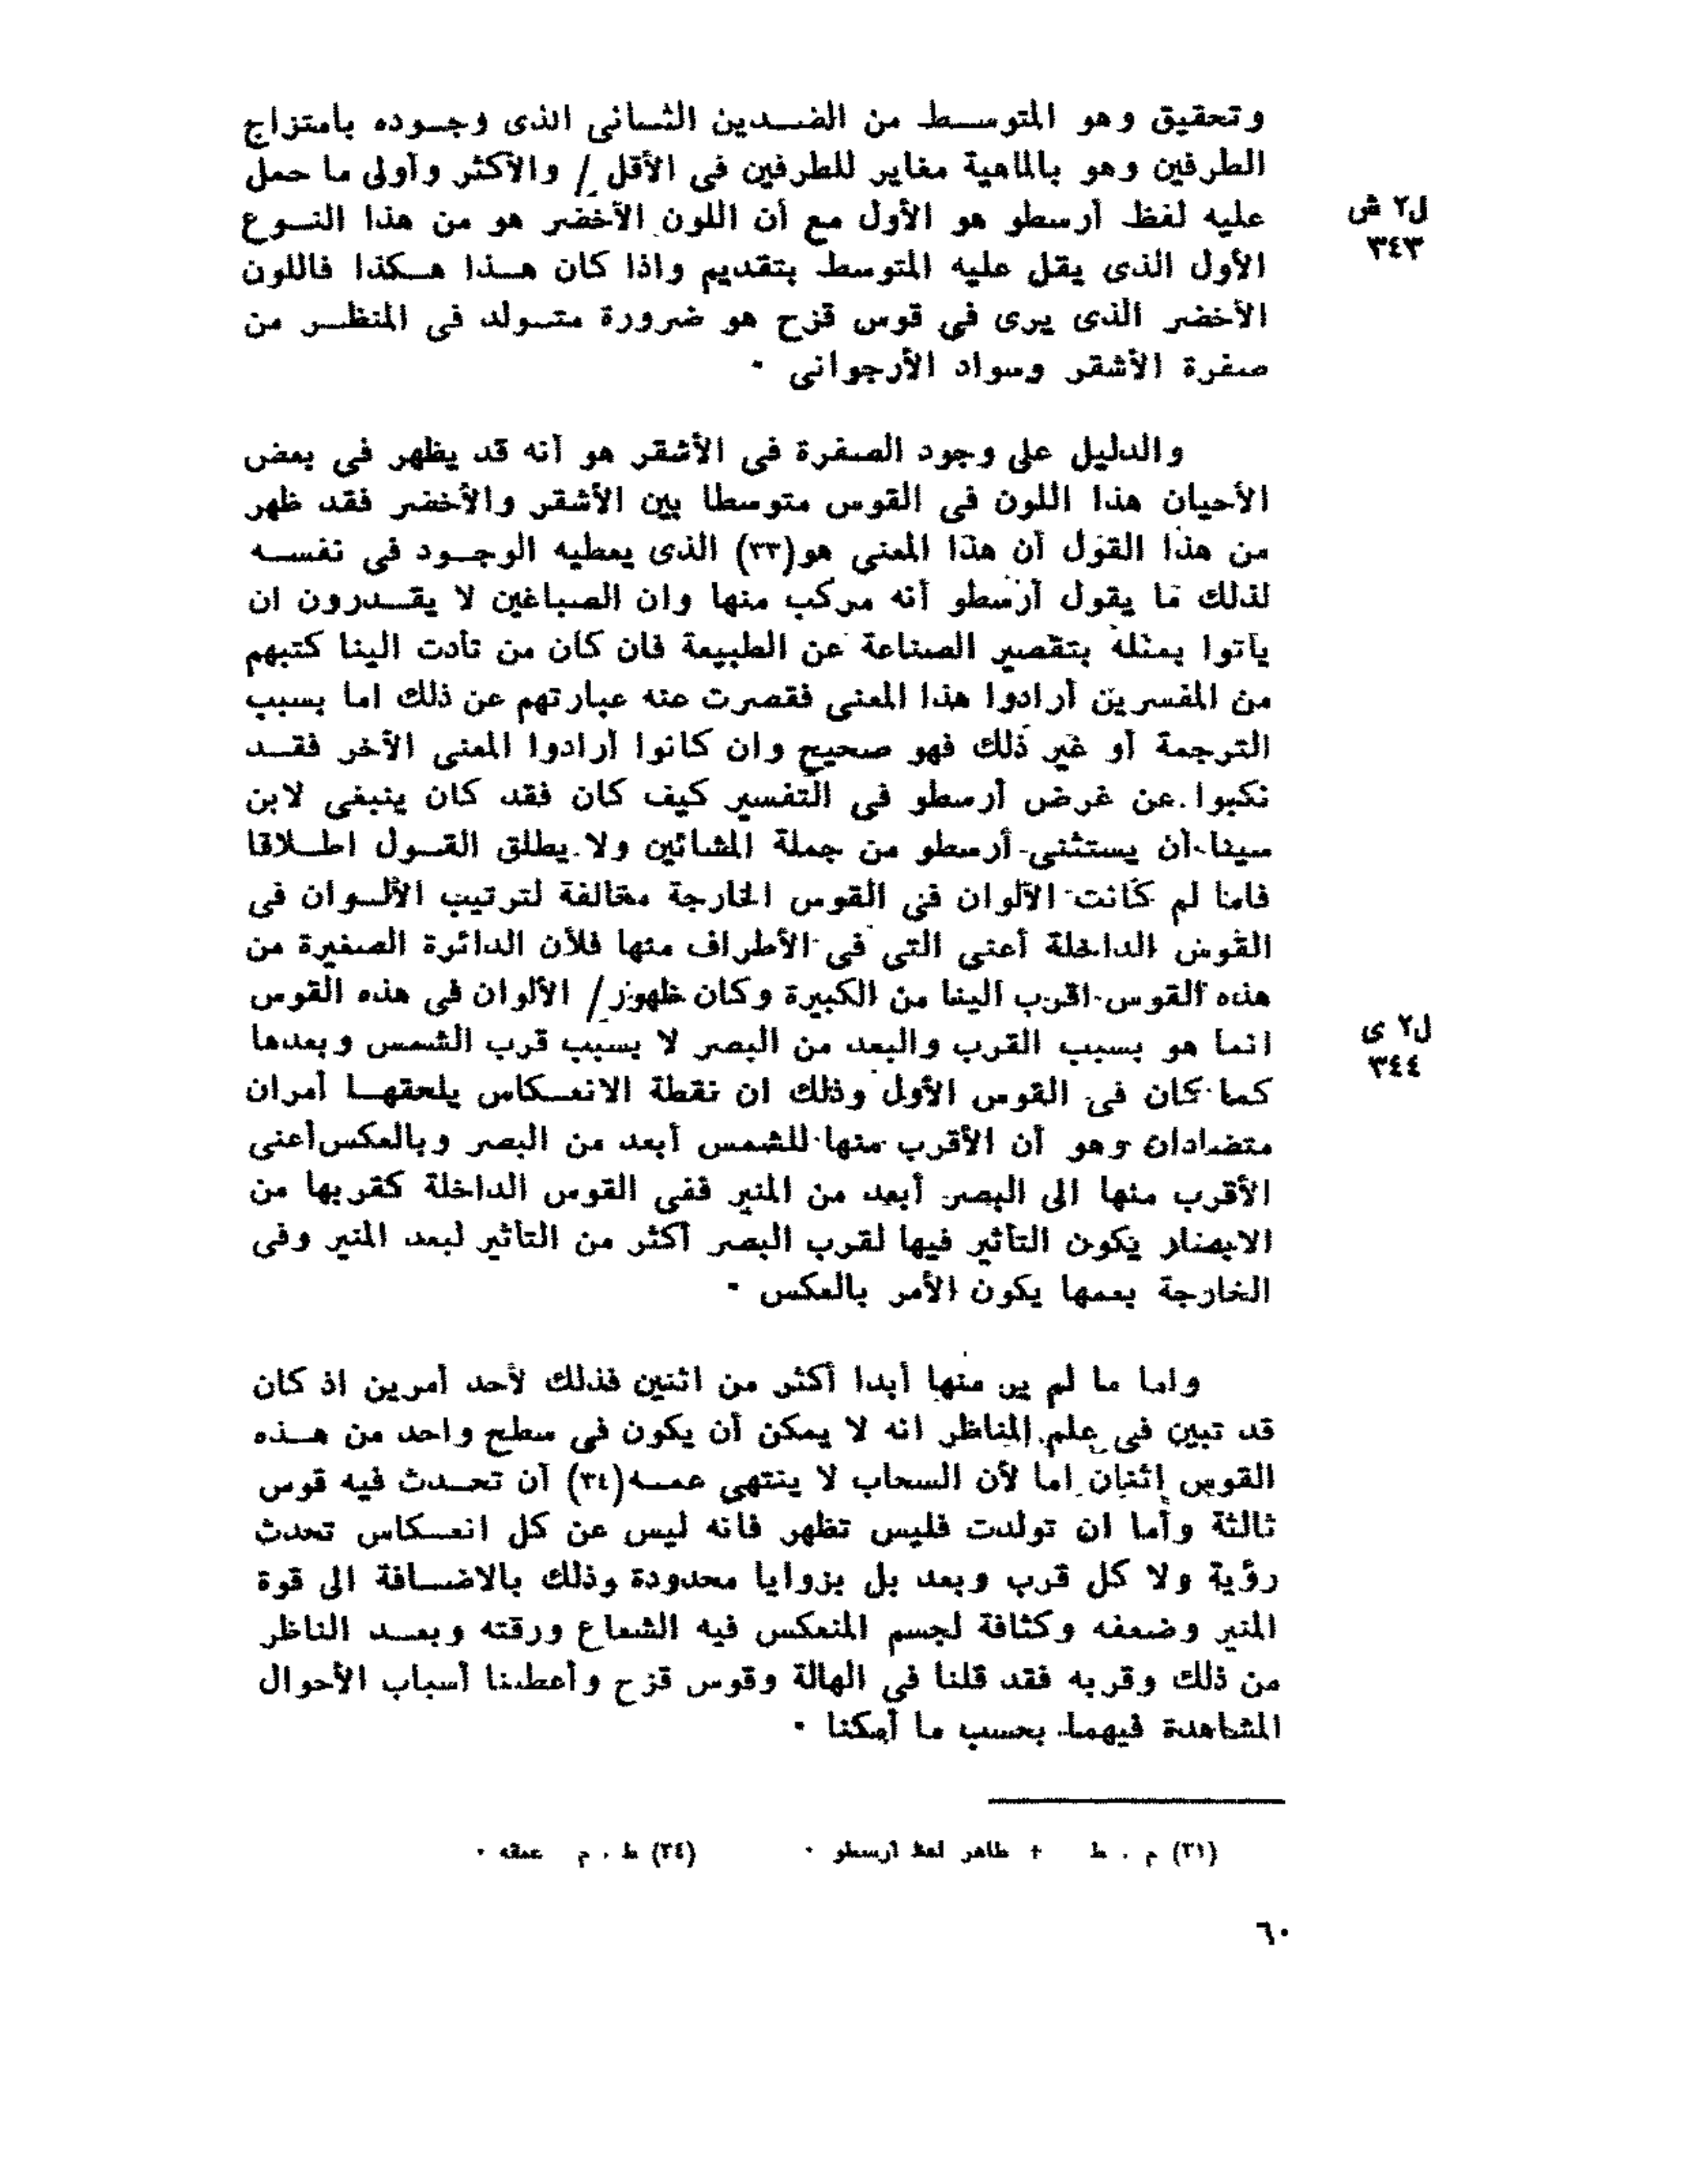 وتحقيق وهو المتوسط من الضدين الثانى الذى وجوده بامتزاج
الطرفين وهو بالماهية مغاير للطرفين فى الأقل / والأكثر وأولى ما حمل
ل٢ ش
٣٤٣
عليه لفظ أرسطو هو الأول مع أن اللون الأخضر هو من هذا النوع
الأول الذى يقل عليه المتوسط بتقديم واذا كان هذا هكذا فاللون
الأخضر الذى يرى فى قوس قزح هو ضرورة متولد فى المنظر من
صفرة الأشقر وسواد الأرجوانى ٠
والدليل على وجود الصفرة فى الأشقر هو أنه قد يظهر فى بعض
الأحيان هذا اللون فى القوس متوسطا بين الأشقر والأخضر فقد ظهر
من هذا القول أن هذا المعنى هو(٣٣) الذى يعطيه الوجود فى نفسه
لذلك ما يقول أرسطو أنه مركب منها وان الصباغين لا يقدرون ان
يأتوا بمثله بتقصير الصناعة عن الطبيعة فان كان من تأدت الينا كتبهم
من المفسرين أرادوا هذا المعنى فقصرت عنه عبارتهم عن ذلك اما بسبب
الترجمة أو غير ذلك فهو صحيح وان كانوا أرادوا المعنى الأخر فقد
نكبوا عن غرض أرسطو فى التفسير كيف كان فقد كان ينبغى لابن
سينا أن يستثنى أرسطو من جملة المشائين ولا يطلق القول اطلاقا
فاما لم كانت الألوان فى القوس الخارجة مخالفة لترتيب الألوان فى
القوس الداخلة أعنى التى فى الأطراف منها فلأن الدائرة الصغيرة من
هذه القوس اقرب الينا من الكبيرة وكان ظهور / الألوان فى هذه القوس
ل٢ ى
٣٤٤
انما هو بسبب القرب والبعد من البصر لا بسبب قرب الشمس وبعدها
كما كان فى القوس الأول وذلك ان نقطة الانعكاس يلحقها أمران
متضادان وهو أن الأقرب منها للشمس أبعد من البصر وبالعكس أعنى
الأقرب منها الى البصر أبعد من المنير ففى القوس الداخلة كقربها من
الابصار يكون التأثير فيها لقرب البصر أكثر من التاثير لبعد المنير وفى
الخارجة بعمها يكون الأمر بالعكس ٠
واما ما لم ير منها أبدا أكثر من اثنين فذلك لأحد أمرين اذ كان
قد تبين فى علم المناظر انه لا يمكن أن يكون فى سطح واحد من هذه
القوس إثنان اما لأن السحاب لا ينتهى عمه(٣٤) أن تحدث فيه قوس
ثالثة وأما ان تولدت فليس تظهر فانه ليس عن كل انعكاس تحدث
رؤية ولا كل قرب وبعد بل بزوايا محدودة وذلك بالاضافة الى قوة
المنير وضعفه وكثافة لجسم المنعكس فيه الشعاع ورقته وبعد الناظر
من ذلك وقربه فقد قلنا فى الهالة وقوس قزح وأعطينا أسباب الأحوال
المشاهدة فيهما بحسب ما أمكنا ٠
(٣١) م ، ط + ظاهر لفظ أرسطو ٠ (٣٤) ط ، م عمقه ٠
٦٠